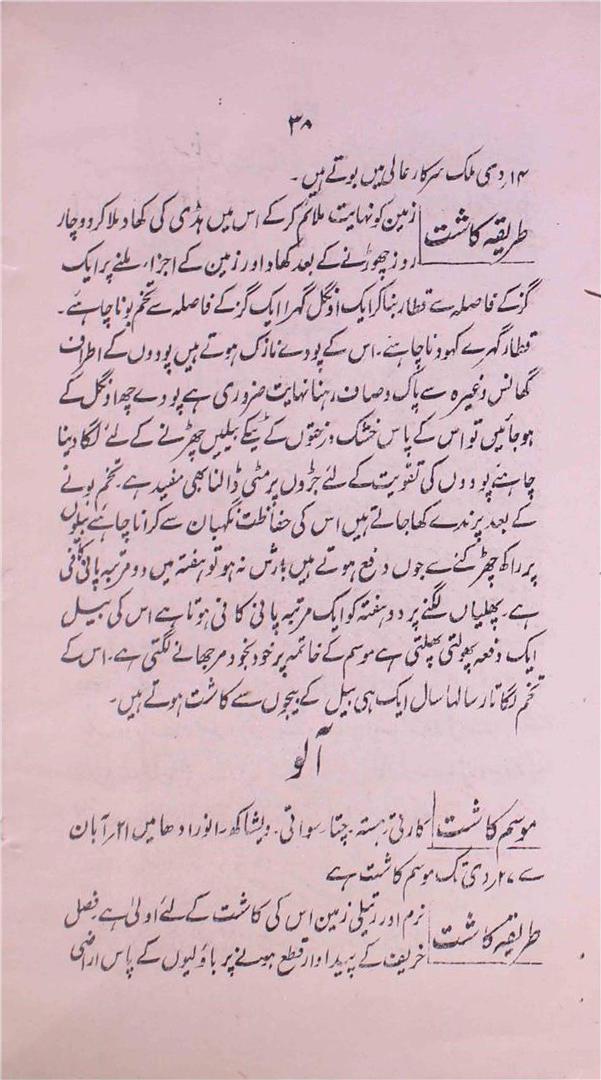 ۳۸
۱۴؍ دی ملک سرکار عالی میں بوتے ہیں۔
طریقہ کاشت زمین کو نہایت ملائم کر کے اس میں ہڈی کی کھاد ملا کر دو چار
روز چھوڑنے کے بعد کھاد اور زمین کے اجزاء ملنے پر ایک
گز کے فاصلہ سے قطار بنا کر ایک اونگل گہرا ایک گز کے فاصلہ سے تخم بونا چاہئے۔
قطار گہرے کھودنا چاہئے۔ اس کے پودے نازک ہوتے ہیں پودوں کے اطراف
گھانس وغیرہ سے پاک و صاف رہنا نہایت ضروری ہے پودے چھ اونگل کے
ہو جائیں تو اس کے پاس خشک درختوں کے ٹیکے بیلیں چڑنے کے لئے لگا دینا
چاہئے پودوں کی تقویت کے لئے جڑوں پر مٹی ڈالنا بھی مفید ہے۔ تخم بونے
کے بعد پرندے کھا جاتے ہیں اس کی حفاظت نگہبان سے کرانا چاہئے بیلوں
پر راکھ چھڑکنے سے جوں دفع ہوتے ہیں بارش نہ ہو تو ہفتہ میں دو مرتبہ پانی کافی
ہے۔ پھلیاں لگنے پر دو ہفتہ کو ایک مرتبہ پانی کافی ہوتا ہے اس کی بیل
ایک دفعہ پھولتی پھلتی ہے موسم کے خاتمہ پر خود بخود مرجھانے لگتی ہے۔ اس کے
تخم لگاتار سالہا سال ایک ہی بیل کے بیجوں سے کاشت ہوتے ہیں۔
آلو
موسم کاشت کارتی ہستہ۔ چتا۔ سواتی۔ ویشاکھ۔ انورادھا میں ۲۱؍ آبان
سے ۲۷؍ دی تک موسم کاشت ہے
طریقہ کاشت نرم اور رتیلی زمین اس کی کاشت کے لئے اولیٰ ہے فصل
خریف کے پیداوار قطع ہونے پر باؤلیوں کے پاس اراضی